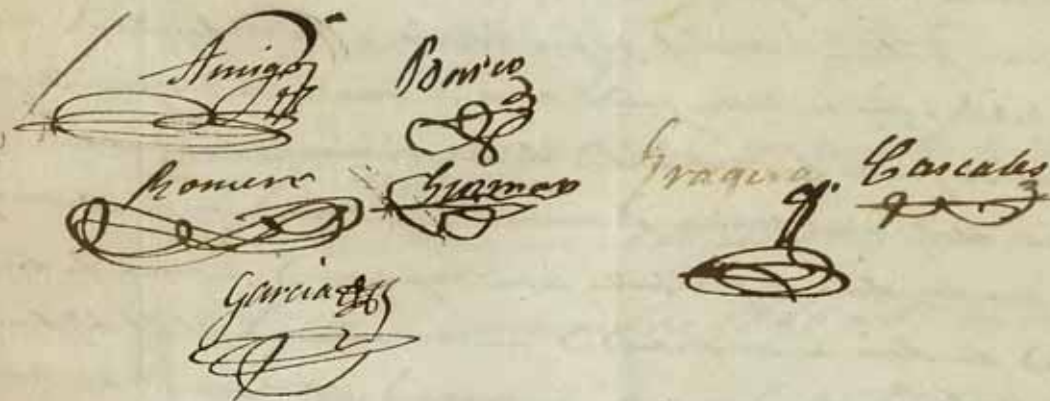 Amigo Barco
Romero Guzman
Graguera Cascales
Garcia